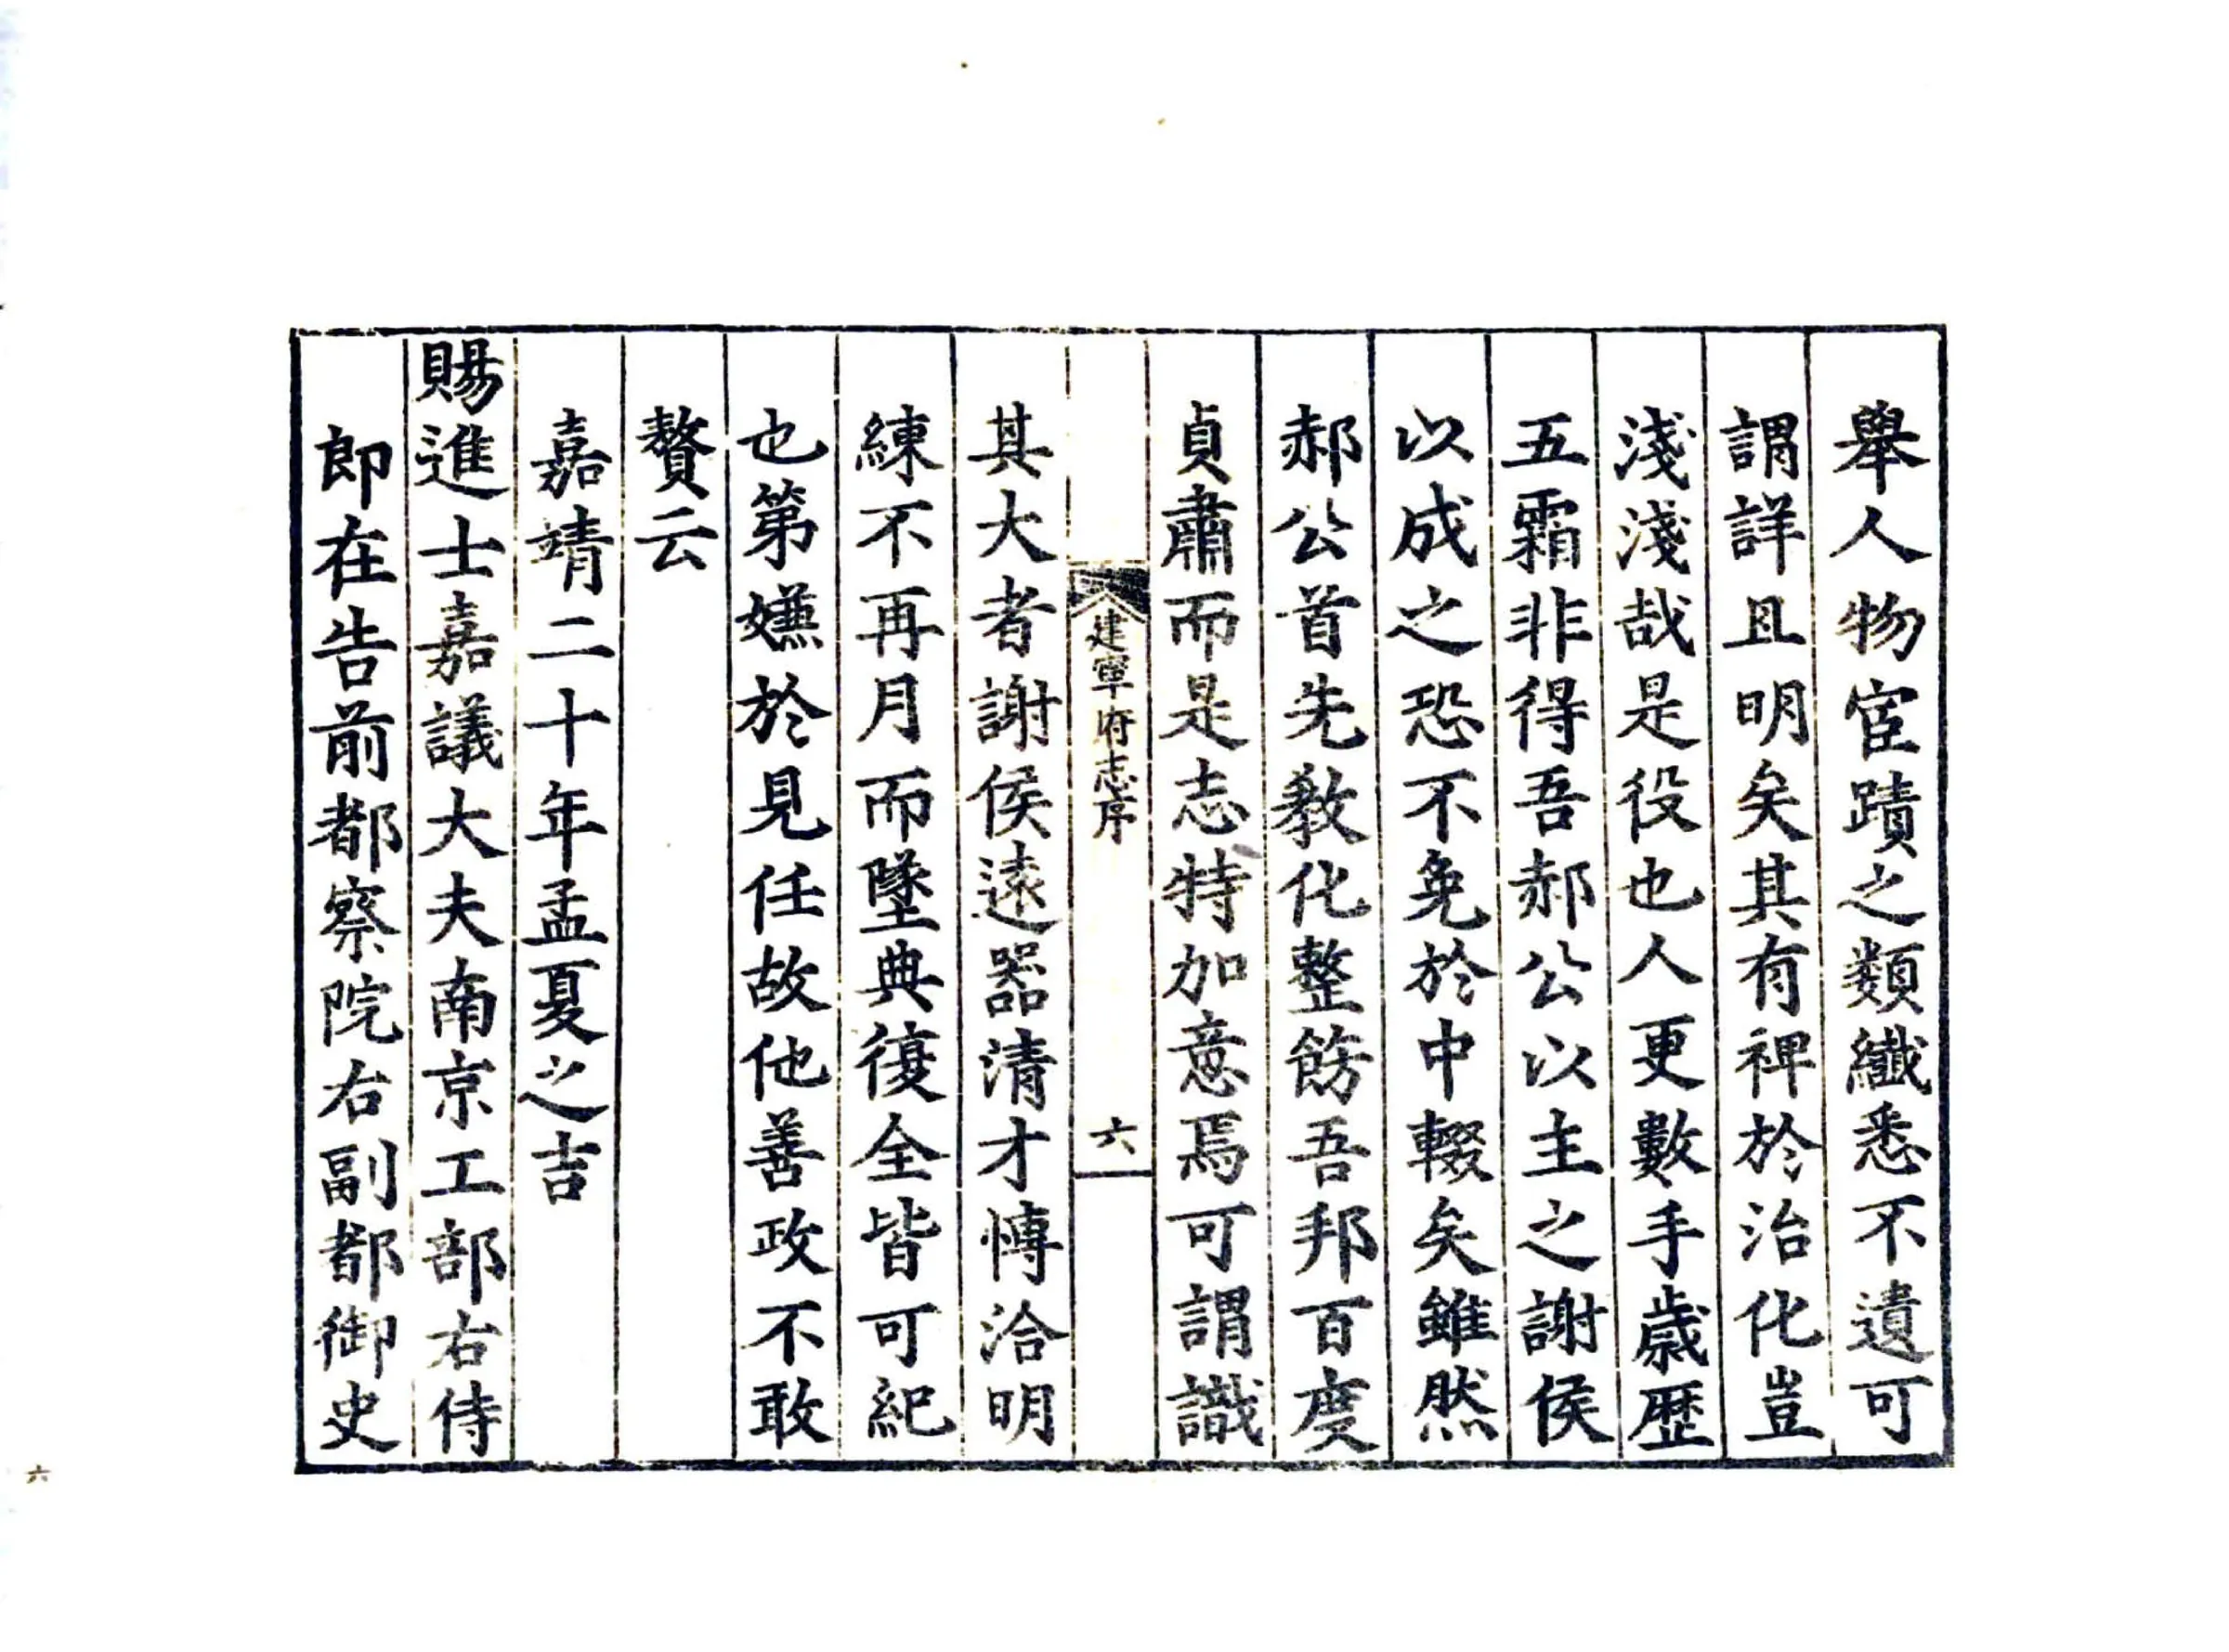 舉人物宦蹟之類纖悉不遺可
謂詳且明矣其有裨於治化豈
淺淺哉是役也人更數手歳歷
五霜非得吾郝公以主之謝侯
以成之恐不免於中輟矣雖然
郝公首先敎化整飭吾邦百度
貞肅而是志特加意焉可謂識
建寧府志序
六
其大者謝侯遠器清才愽洽明
練不再月而墜典復全皆可紀
也第嫌於見任故他善政不敢
贅云
嘉靖二十年孟夏之吉
賜進士嘉議大夫南京工部右侍
郎在告前都察院右副都御史
六